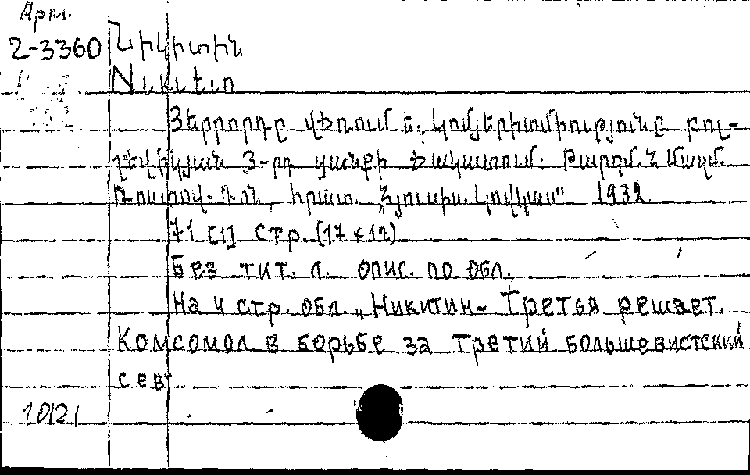 Арт.
2-3360 Նիկիտին
Nикitin
Յերրորդը վճռում է. կոմյերիտմիությունը բոլ-
շևիկյան 3-րդ ցանքի ճակատում. Թարգմ. Հ.
Ռոստով-Դոն, հրատ. „Հյուսիս. կովկաս" 1932.
71 [1] стр. (17×12)
Без тит. л. опис. по обл.
На 4 стр. обл. „Никитин- Третья решает.
Комсомол в борьбе за третий большевистский
сев
10121